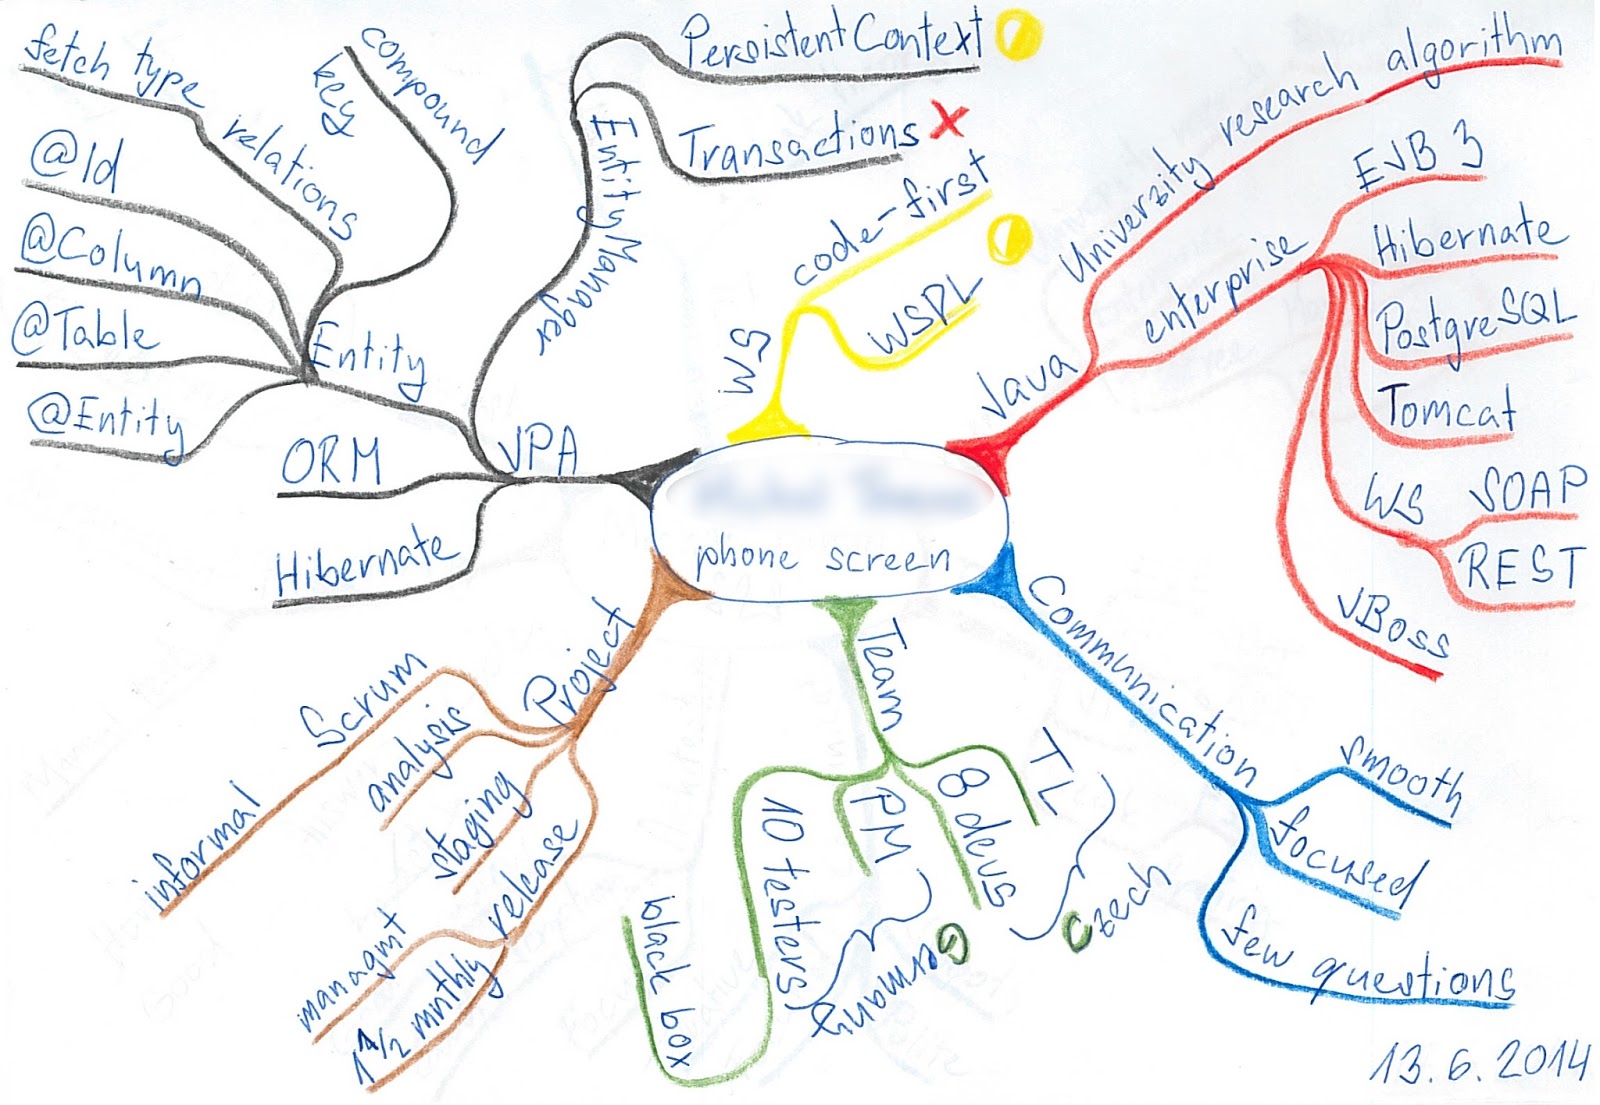 phone screen
Java
University research algorithm
enterprise
EJB 3
Hibernate
PostgreSQL
Tomcat
WS
SOAP
REST
JBoss
Communication
smooth
focused
few questions
Team
TL
8 devs
Czech
PM
10 testers
Germany
black box
Project
Scrum
informal
analysis
staging
release
managmt
1 1/2 mnthly
JPA
Hibernate
ORM
Entity
@Entity
@Table
@Column
@Id
relations
fetch type
compound
key
EntityManager
PersistentContext
Transactions
WS
code-first
WSPL
13.6.2014